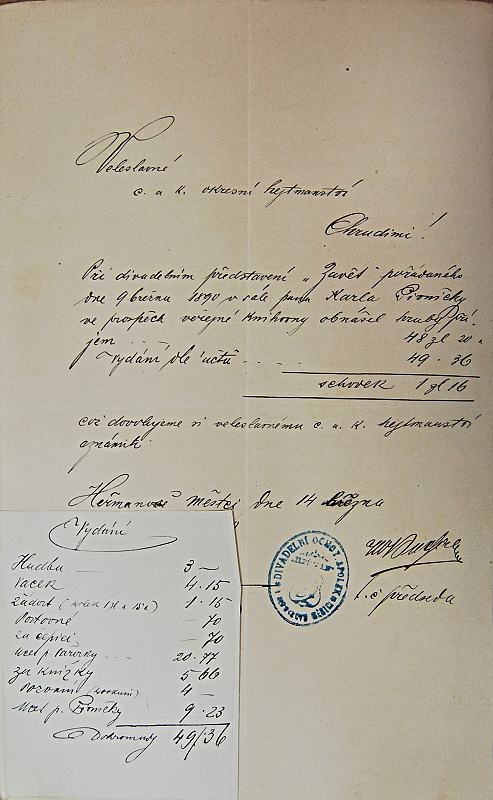 Veleslavné
c. a k. okresní hejtmanství
Chrudimi!
Při divadelním představení „Závěť“ pořádaného
dne 9 března 1890 v sále pana Karla
ve prospěch veřejné knihovny obnášel hrubý pří-
jem 48 zl 20
Vydání dle účtů 49 . 36
schodek 1 zl 16
což dovolujeme si veleslavnému c. a k. hejtmanství
oznámiti
Heřmanově Městci dne 14 března
t. č. předseda
DIVADELNÍ OCHOT. SPOLEK
Vydání
Hudba 3 —
Vacek 4 . 15
Žádost 1 . 15
Poštovné — 70
za čepici — 70
účet p. 20 . 77
za knížky 5 66
4 —
účet p. 9 . 23
Dohromady 49/36